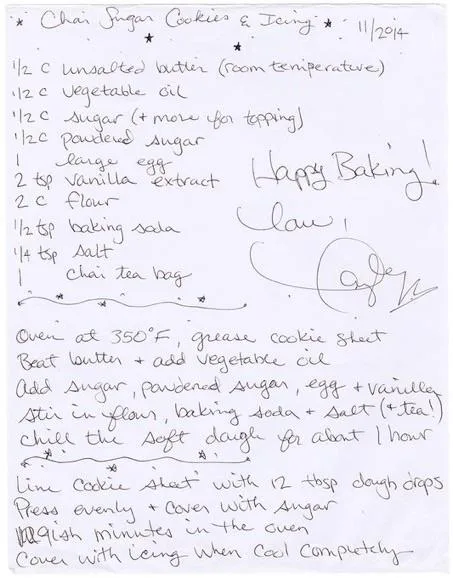 * Chai Sugar Cookies & Icing * 11/2014
1/2 c unsalted butter (room temperature)
1/2 c vegetable oil
1/2 c sugar (+ more for topping)
1/2 c powdered sugar
1 large egg
2 tsp vanilla extract
2 c flour
1/2 tsp baking soda
1/4 tsp salt
1 chai tea bag
Happy Baking!
Oven at 350°F, grease cookie sheet
Beat butter + add vegetable oil
Add sugar, powdered sugar, egg + vanilla
stir in flour, baking soda + salt (+ tea!)
chill the soft dough for about 1 hour
Line cookie sheet with 12 tbsp dough drops
Press evenly + cover with sugar
9ish minutes in the oven
Cover with icing when cool completely